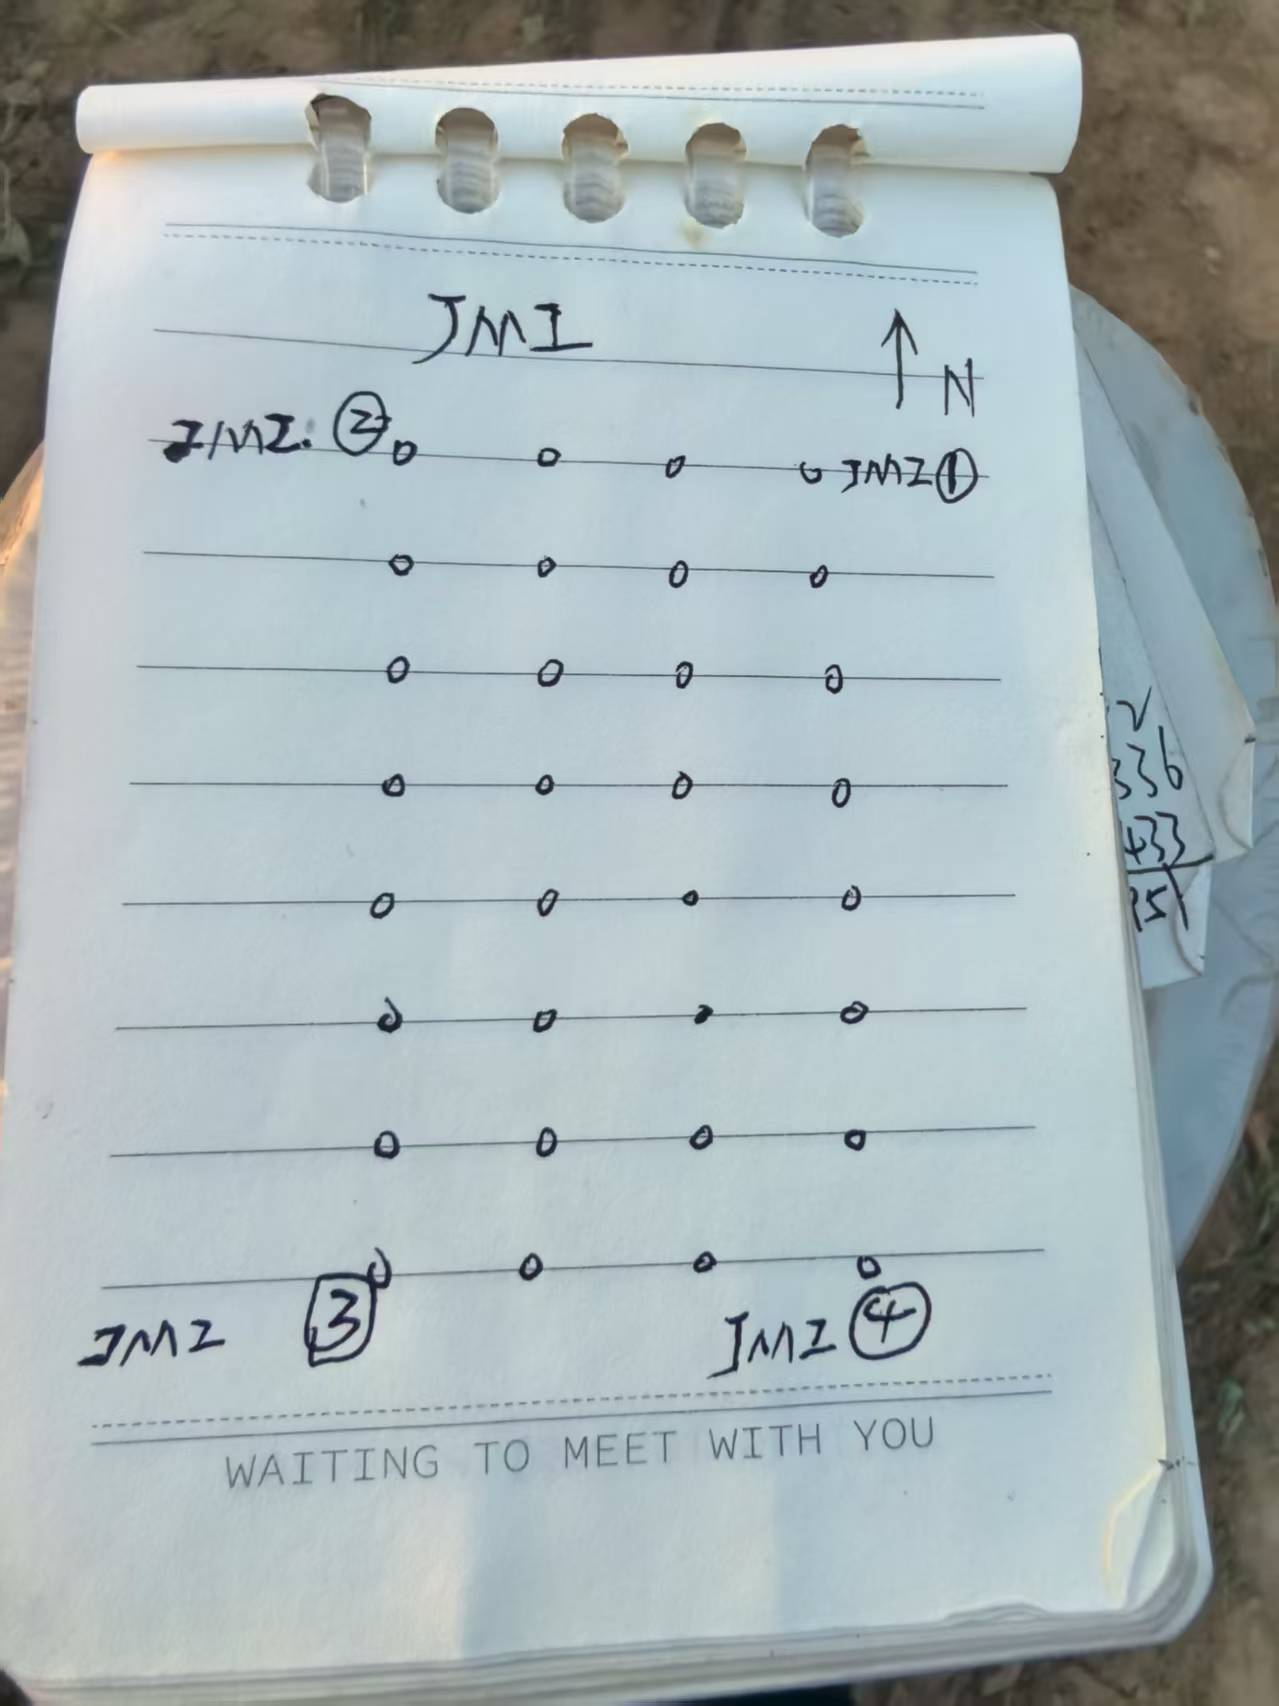 JMI
N
JMI. ②
JMI①
JMI ③
JMI ④
WAITING TO MEET WITH YOU
336
433